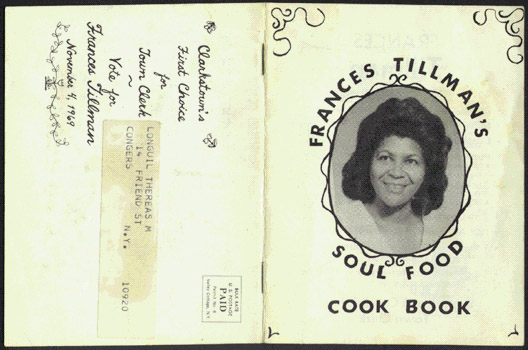 Clarkstown's
First Choice
for
Town Clerk
~
Vote for
Frances Tillman
November 4, 1969
LONGUIL THEREAS M
14 FRIEND ST
CONGERS N.Y. 10920
BULK RATE
U.S. POSTAGE
PAID
FRANCES TILLMAN'S
SOUL FOOD
COOK BOOK